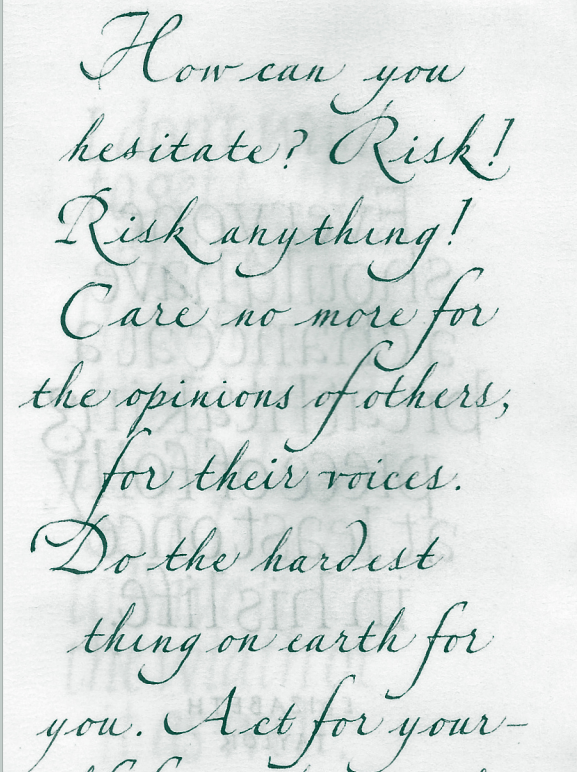 How can you
hesitate? Risk!
Risk anything!
Care no more for
the opinions of others,
for their voices.
Do the hardest
thing on earth for
you. Act for your-